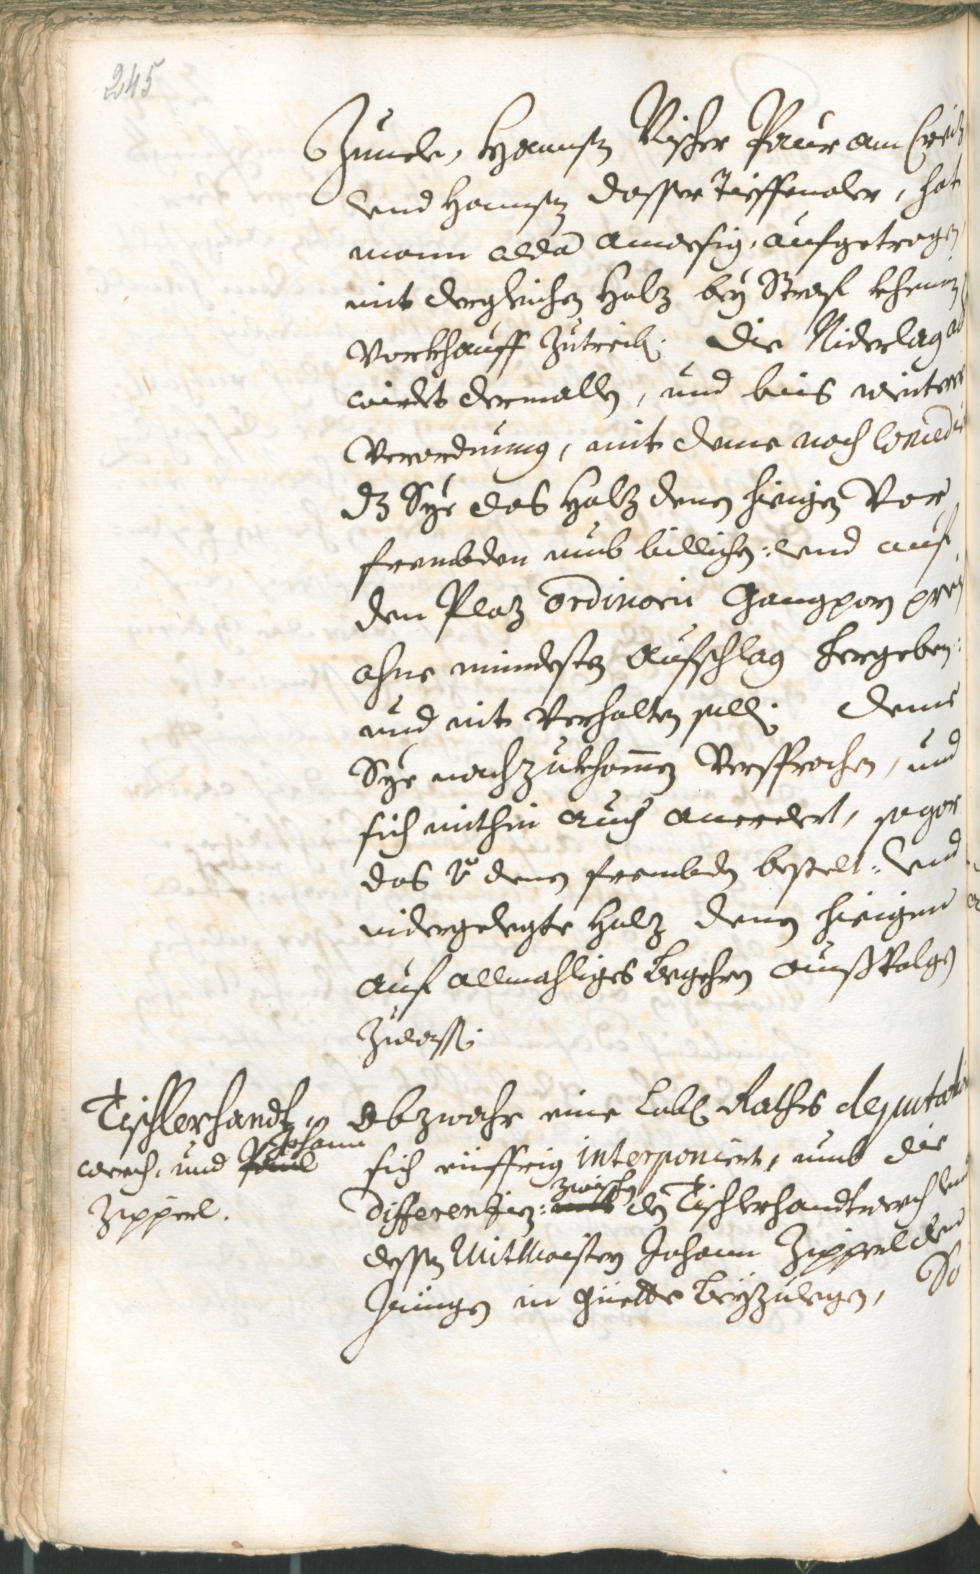 245
Zunde, Hannsen Vischer Paur am
und Hannsen Dosser Tieffenaler, hat
mann alda ansesig, aufgetragen
mit dergleichen Holz bey Straf kheinen
Vorkhauff zutreiben. Die Niderlag
wirdt dermallen, und bis weiterer
Verordnung, mit deme noch
dz Sye das Holz denen hieigen Vor
frembden umb billichen: und auf
den Plaz ordinari Gangparen preis
ohne mindesten Aufschlag hergeben:
und nit Verhalten sollen. Deme
Sye nachzukhomen Versprochen, und
sich mithin auch anerbert, sogar
das v denen frembden bestelt: und
nidergelegte Holz denen hieigen
auf allmahliges begehren ausfolgen
Zulassen.
Tischlerhandt
werch: und Paul Johann
Zipperl.
Obzwahr eine Lobl. Raths deputation
sich eüffrig interponiert, umb die
Differenzien: zwischen den Tischlerhandtwerch und
dessen Mitmaister Johann Zipperl den
Jüngern in güette beyzulegen, So